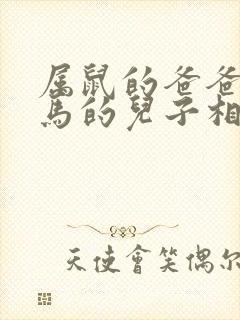 属鼠的爸爸
马的兒子相
天使會笑偶尔